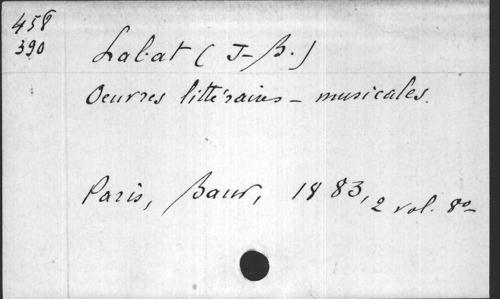 458
390
Labat (J-B.)
Oeuvres littéraires - musicales.
Paris, Baur, 1883, 2 vol. 8º